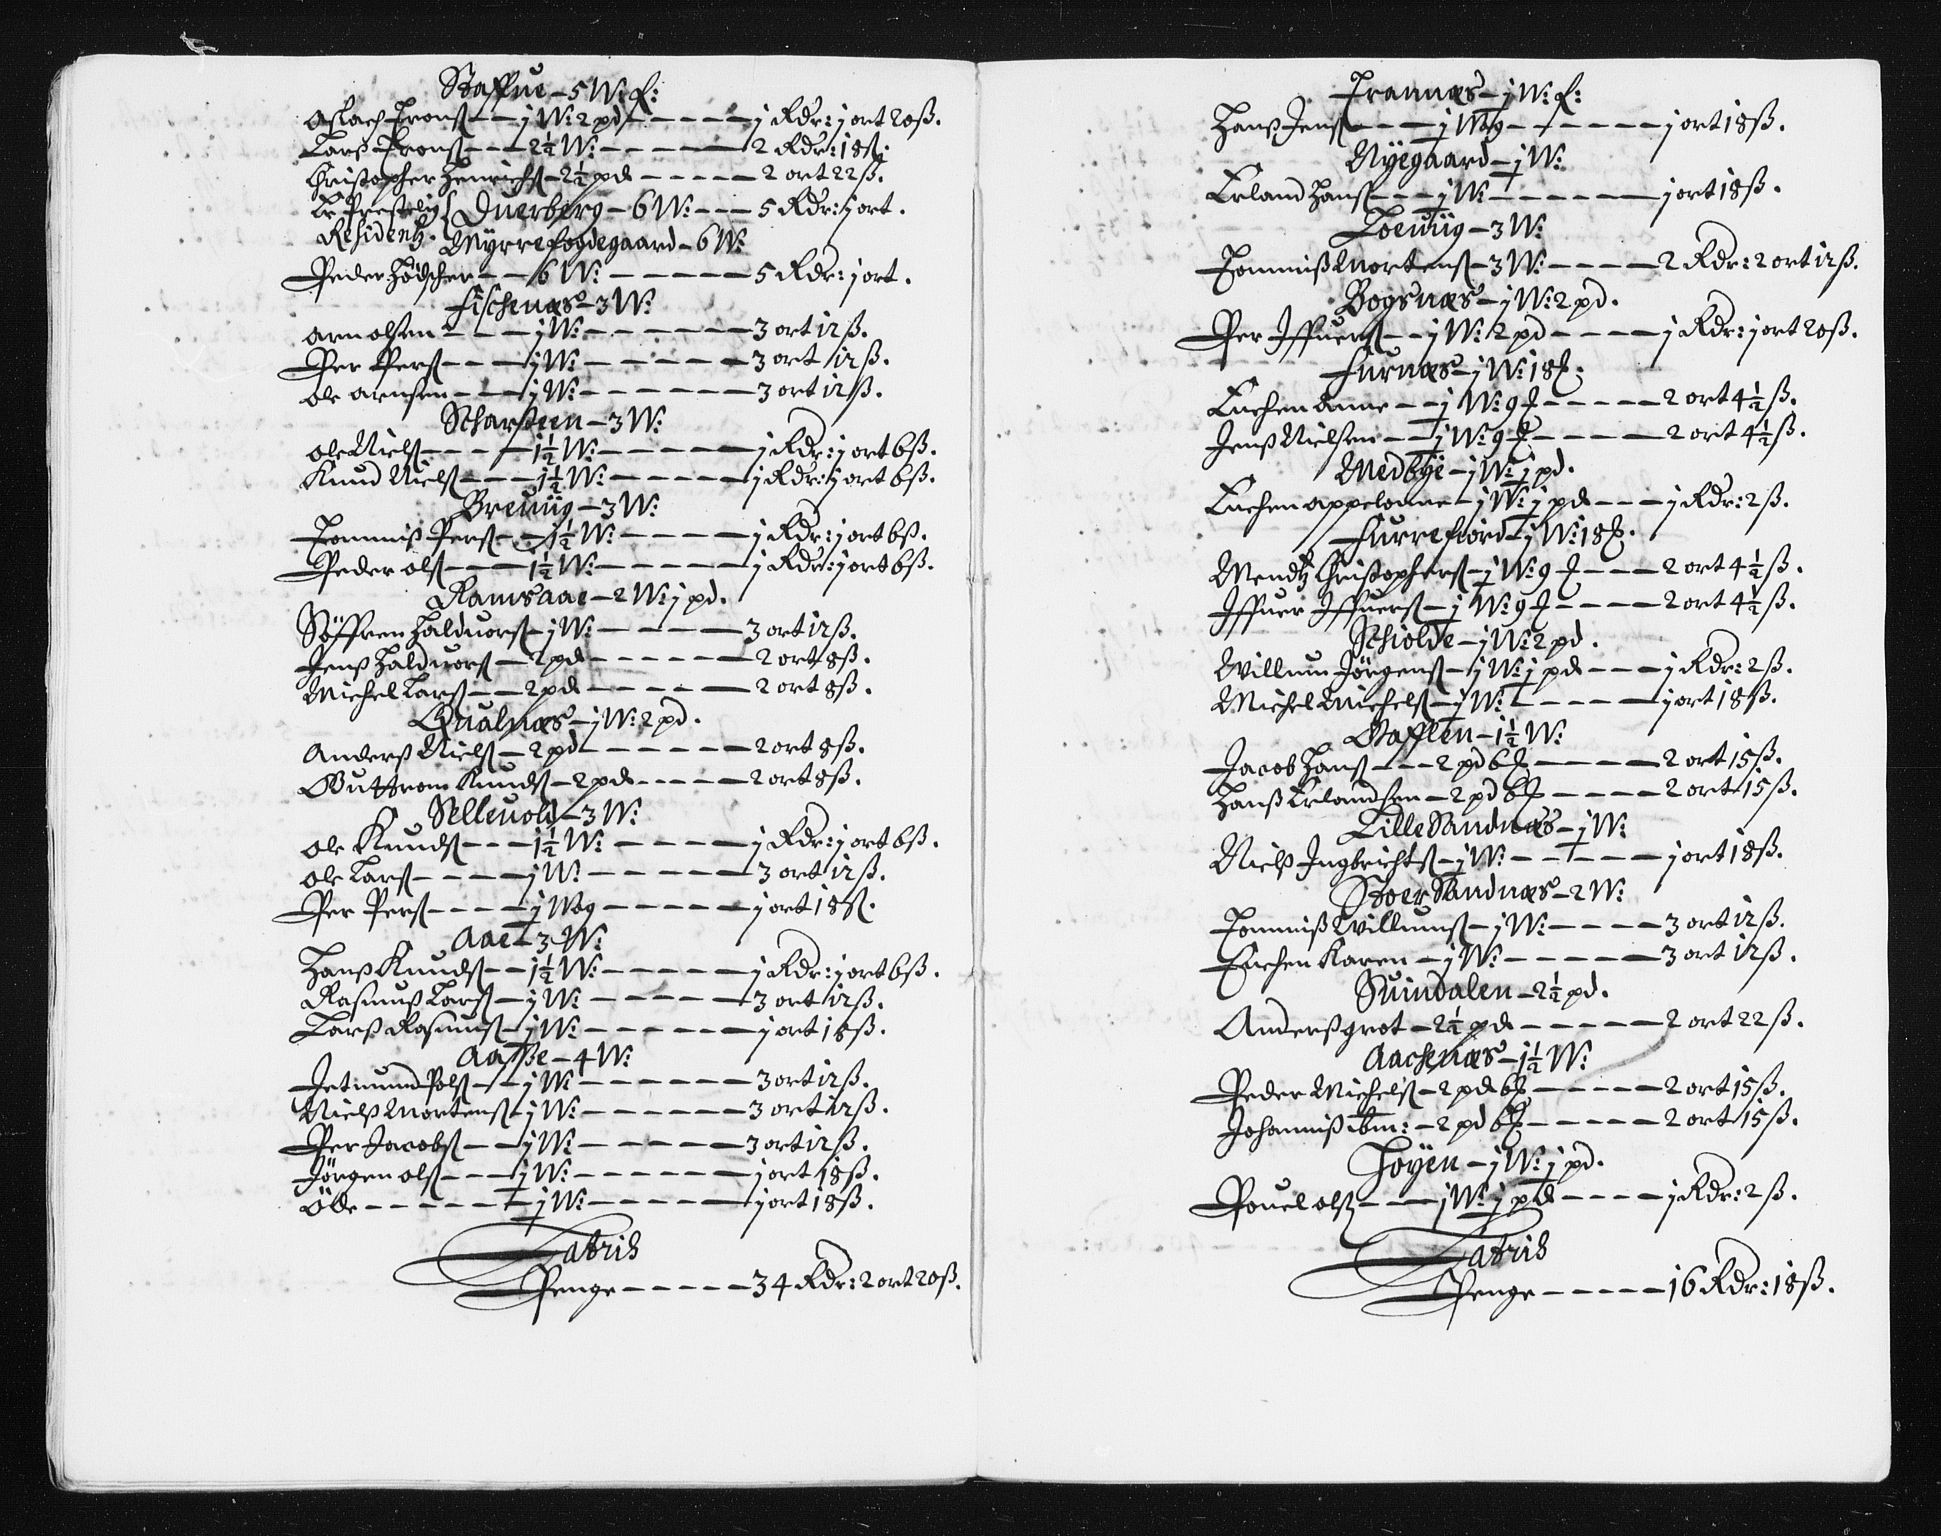 Staffue – 5 W: f:
Aslach Tronß – – j W: 2 pd – – – – – j Rdr: j ort 20 ß.
Larß Tronß – – – 2½ W: – – – – – – 2 Rdr: 18 ß.
Christopher Henrichß – 2½ pd – – – – – 2 ort 22 ß.
Residentz. { Duerberg – 6 W: – – – 5 Rdr: j ort.
Myrre fogdegaard – 6 W:
Peder – – 6 W: – – – – – – 5 Rdr: j ort.
Fischenæs – 3 W:
Arn olsen – – – – j W: – – – – – – 3 ort 12 ß.
Per Perß – – – – j W: – – – – – – 3 ort 12 ß.
Ole arnsen – – – j W: – – – – – – 3 ort 12 ß.
Scharsteen – 3 W:
Ole Nielß – – – – 1½ W: – – – – – j Rdr: j ort 6 ß.
Knud Nielß – – – 1½ W: – – – – – j Rdr: j ort 6 ß.
Breuiig – 3 W:
Tommiß Perß – – 1½ W: – – – – – j Rdr: j ort 6 ß.
Peder olß – – – 1½ W: – – – – – – j Rdr: j ort 6 ß.
Ramsaae – 2 W: j pd.
Söffren Halduorß – j W: – – – – – – 3 ort 12 ß.
Jenß Halduorß – 2 pd – – – – – – 2 ort 8 ß.
Michel Larß – – 2 pd – – – – – – 2 ort 8 ß.
Qualnæs – j W: 2 pd.
Anderß Nielß – 2 pd – – – – – – 2 ort 8 ß.
Guttrom Knudß – 2 pd – – – – – 2 ort 8 ß.
Selleuold – 3 W:
Ole Knudß – – – 1½ W: – – – – – j Rdr: j ort 6 ß.
Ole Larß – – – – j W: – – – – – – 3 ort 12 ß.
Per Perß – – – – j Wog – – – – – – j ort 18 ß.
Aae – 3 W:
Hanß Knudß – – 1½ W: – – – – – j Rdr: j ort 6 ß.
Rasmuß Larß – j W: – – – – – – 3 ort 12 ß.
Larß Rasmusß – j W: – – – – – – j ort 18 ß.
Aaße – 4 W:
Jetmund Polß – – j W: – – – – – – 3 ort 12 ß.
Nielß Mortenß – j W: – – – – – – 3 ort 12 ß.
Per Jacobß – – j W: – – – – – – 3 ort 12 ß.
Jörgen olß – – – j W: – – – – – – j ort 18 ß.
Öde – – – – – – j W: – – – – – – j ort 18 ß.
Latris
Penge – – – – – 34 Rdr: 2 ort 20 ß.
Trannæs – j W: f:
Hanß Jenß – – – – j Wog – – – – – – j ort 18 ß.
Nyegaard – j W:
Erland Hanß – – – j W: – – – – – – j ort 18 ß.
Loeuiig – 3 W:
Tommiß Mortenß – 3 W: – – – – 2 Rdr: 2 ort 12 ß.
Bogsnæs – j W: 2 pd.
Per Iffuerß – – j W: 2 pd – – – – j Rdr: j ort 20 ß.
Furnæs – j W: 18 ℔.
Enchen Anne – – j W: 9 ℔ – – – – – 2 ort 4½ ß.
Jenß Nielsen – – j W: 9 ℔ – – – – – 2 ort 4½ ß.
Medbye – j W: j pd.
Enchen appelonne – j W: j pd – – – j Rdr: 2 ß.
Furrefiord – j W: 18 ℔.
Mendtz Christopherß – j W: 9 ℔ – – – – 2 ort 4½ ß.
Iffuer Iffuerß – j W: 9 ℔ – – – – – 2 ort 4½ ß.
Schiolde – j W: 2 pd.
Willum Jörgenß – j W: j pd – – – j Rdr: 2 ß.
Michel Michelß – j W: – – – – – j ort 18 ß.
Gafflen – 1½ W:
Jacob Hanß – – – 2 pd 6 ℔ – – – – – 2 ort 15 ß.
Hanß Erlandsen – 2 pd 6 ℔ – – – – – 2 ort 15 ß.
Lille Sandnæs – j W:
Nielß Ingbrichtß – j W: – – – – – – j ort 18 ß.
Stoer Sandnæs – 2 W:
Tommiß Willumß – j W: – – – – – 3 ort 12 ß.
Enchen Karen – j W: – – – – – – 3 ort 12 ß.
Suindalen – 2½ pd.
Anderß grot – 2½ pd – – – – – – 2 ort 22 ß.
Aachenæs – 1½ W:
Peder Michelß – 2 pd 6 ℔ – – – – – 2 ort 15 ß.
Johanniß ibm: – 2 pd 6 ℔ – – – – – 2 ort 15 ß.
Höyen – j W: j pd.
Pouel olß – – – j W: j pd – – – – j Rdr: 2 ß.
Latris
Penge – – – – – 16 Rdr: 18 ß.